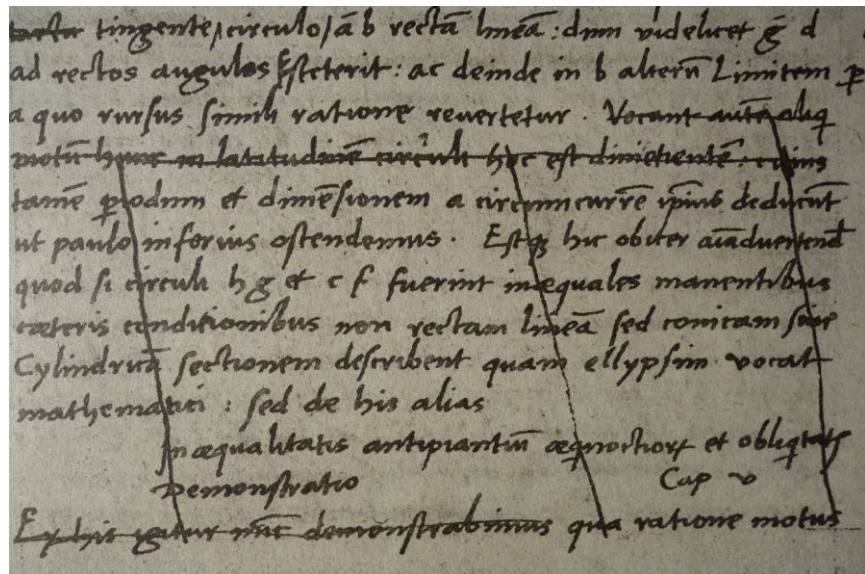 tacta tingente circulo / ā b rectā lineā : dum videlicet g d
ad rectos angulos steterit : ac deinde in b alterū Limitem ꝑ
a quo rursus simili ratione revertetur . Vocant autē aliq
motū hunc in latitudinē circuli hoc est dimetientē : cuius
tamē ꝑiodum et dimēsionem a circumcurrē ip̄ius deducūt
ut paulo inferius ostendemus . Estqꝫ hic obiter aīadvertend
quod si circuli h g et c f fuerint inæquales manentibus
cæteris conditionibus non rectam lineā sed conicam sive
Cylindricā sectionem describent quam ellypsim vocāt
mathematici : sed de his alias
Inæqualitatis antipiantiū æquinoctiorꝝ et
Demonstratio Cap v
Ex his igitur nūc demonstrabimus qua ratione motus